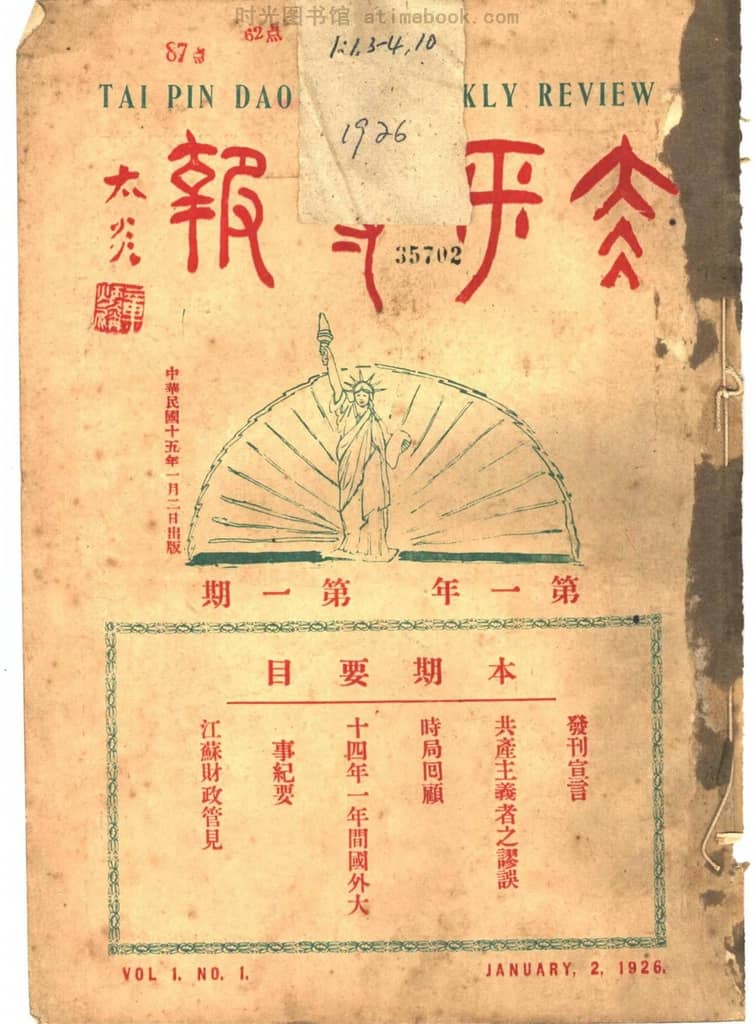 时光图书馆 atimebook.com
87点
62点
1:1,3-4,10
1926
TAI PIN DAO KLY REVIEW
太平 報
太炎
35702
中華民國十五年一月二日出版
第一年 第一期
本期要目
發刊宣言
共產主義者之謬誤
時局囘顧
十四年一年間國外大
事紀要
江蘇財政管見
VOL 1, NO. 1.
JANUARY, 2, 1926.